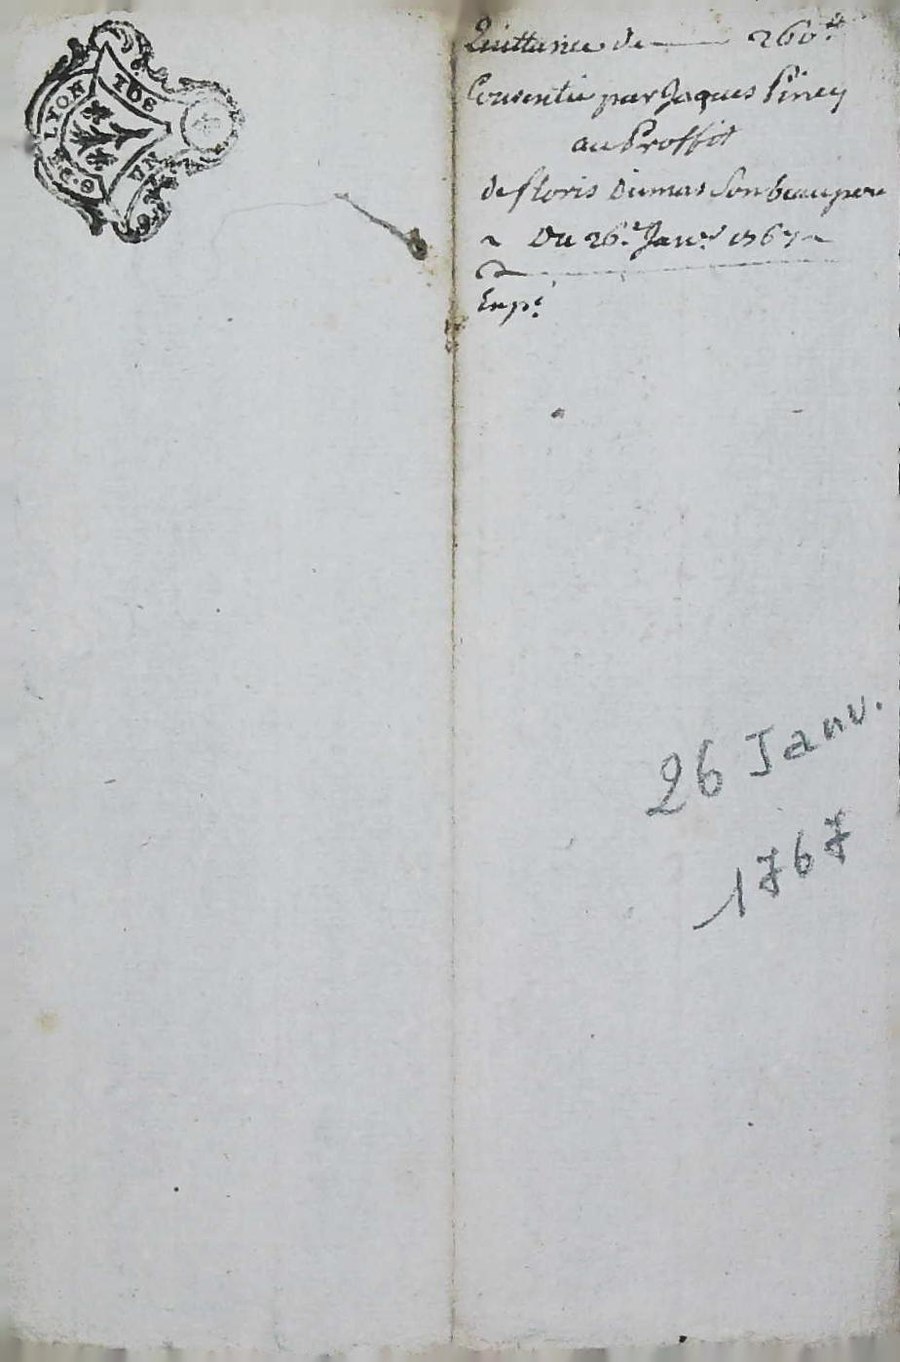 LYON
TOS
UN
Quittance de 260#
Consentie par Jaques Piney
au Proffit
de floris Dumas Son beaupere
Du 26.e Janv.r 1767
Exp.é
26 Janv.
1767